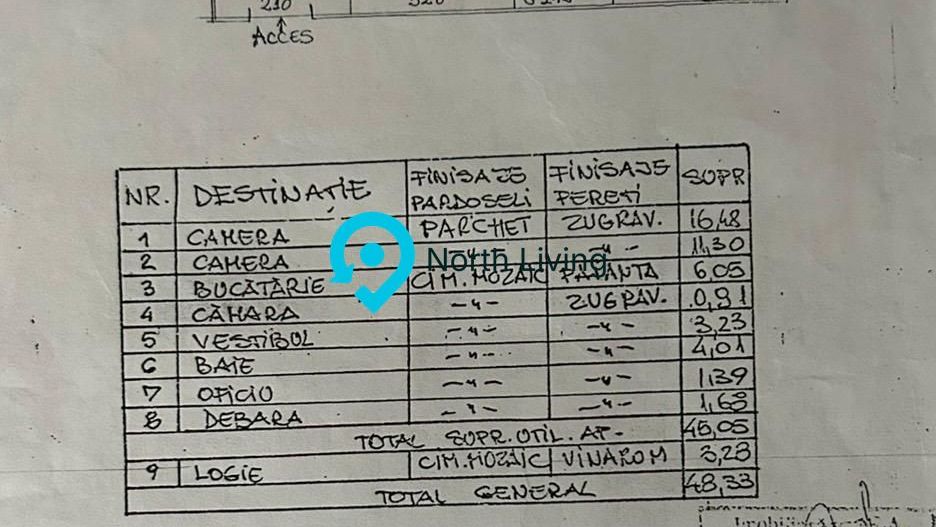 210
ACCES
NR. DESTINAȚIE FINISAJE PARDOSELI FINISAJE PEREȚI SUPR
1 CAMERA PARCHET ZUGRAV. 16,48
2 CAMERA -〃- -〃- 11,30
3 BUCĂTĂRIE CIM.MOZAIC FAIANTA 6,05
4 CĂMARA -〃- ZUGRAV. 0,91
5 VESTIBUL -〃- -〃- 3,23
6 BAIE -〃- -〃- 4,01
7 OFICIU -〃- -〃- 1,39
8 DEBARA -〃- -〃- 1,68
TOTAL SUPR. UTIL. AP. 45,05
9 LOGIE CIM.MOZAIC VINAROM 3,28
TOTAL GENERAL 48,33
North Living